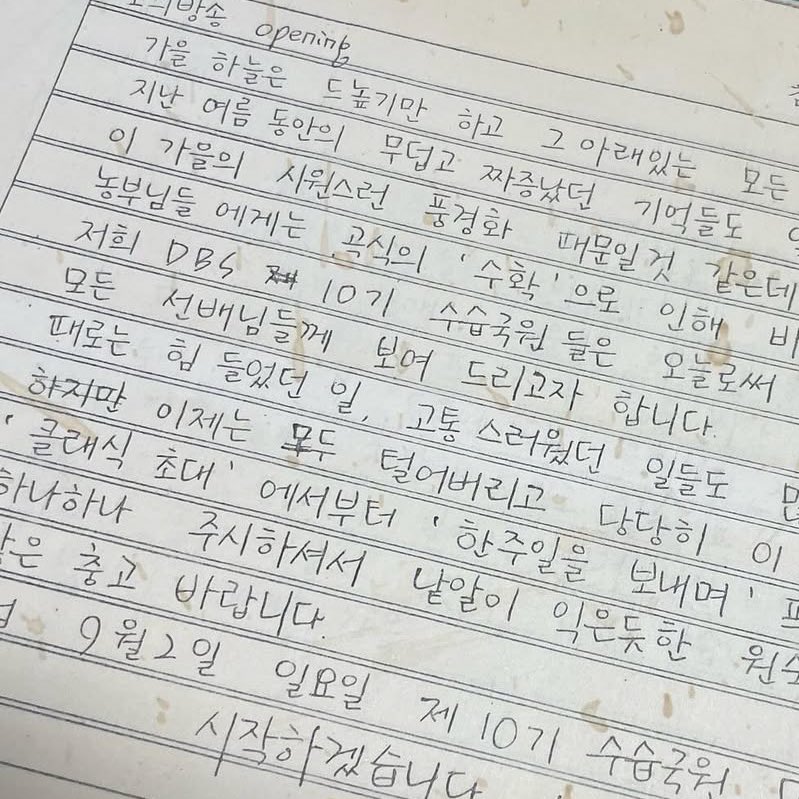 opening
가을 하늘은 드높기만 하고 그 아래있는 모든
지난 여름 동안의 무덥고 짜증났던 기억들도
이 가을의 시원스런 풍경화 때문일것 같은데
농부님들에게는 곡식의 '수확'으로 인해
저희 DBS 10기 수습국원들은 오늘로써
모든 선배님들께 보여 드리고자 합니다.
때로는 힘 들었던 일, 고통스러웠던 일들도
하지만 이제는 모두 털어버리고 당당히 이
'클래식 초대'에서부터 '한주일을 보내며'
하나하나 주시하셔서 낱알이 익은듯한
충고 바랍니다.
9월2일 일요일 제10기 수습국원
시작하겠습니다.